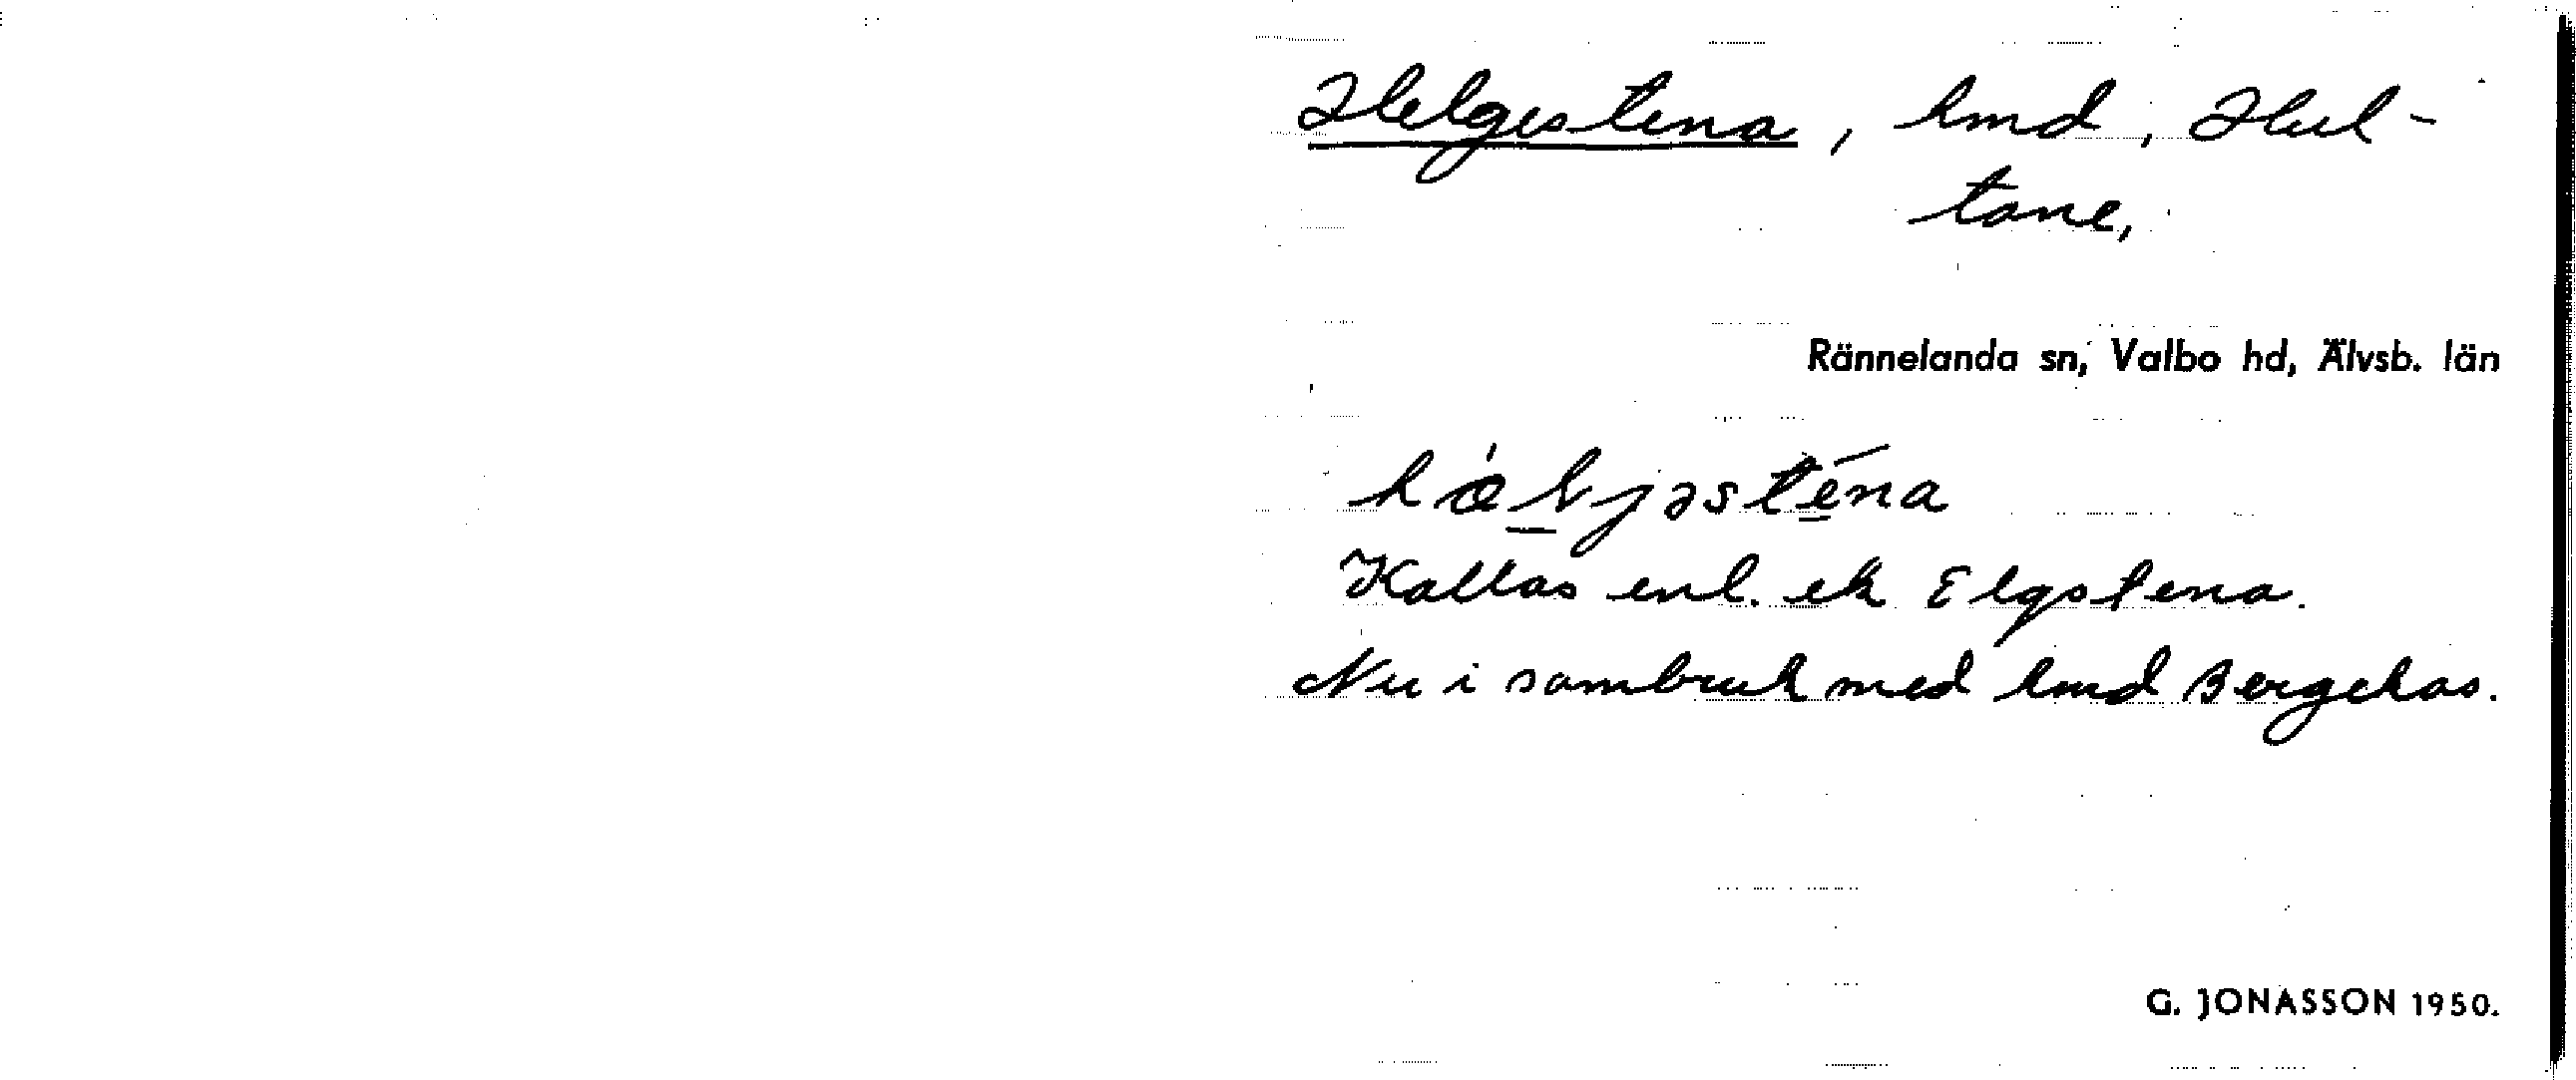 Helgestena, hmd, Hul-
tane,
Rännelanda sn, Valbo hd, Älvsb. län
hæ̀ljəsténa
Kallas enl. ek Elgstena.
Nu i sambruk med hmd Bergehas.
G. JONASSON 1950.